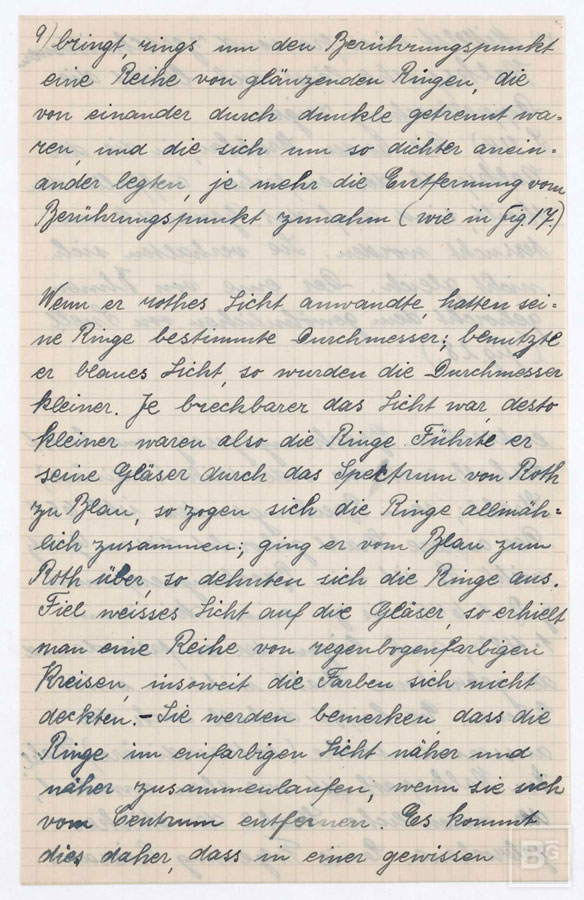 9) bringt, rings um den Berührungspunkt
eine Reihe von glänzenden Ringen, die
von einander durch dunkle getrennt wa-
ren, und die sich um so dichter anein-
ander legten, je mehr die Entfernung vom
Berührungspunkt zunahm (wie in fig. 17.)
Wenn er rothes Licht anwandte, hatten sei-
ne Ringe bestimmte Durchmesser; benutzte
er blaues Licht, so wurden die Durchmesser
kleiner. Je brechbarer das Licht war, desto
kleiner waren also die Ringe. Führte er
seine Gläser durch das Spektrum von Roth
zu Blau, so zogen sich die Ringe allmäh-
lich zusammen; ging er vom Blau zum
Roth über, so dehnten sich die Ringe aus.
Fiel weisses Licht auf die Gläser, so erhielt
man eine Reihe von regenbogenfarbigen
Kreisen, insoweit die Farben sich nicht
deckten. – Sie werden bemerken, dass die
Ringe im einfarbigen Licht näher und
näher zusammenlaufen, wenn sie sich
vom Centrum entfernen. Es kommt
dies daher, dass in einer gewissen
BG